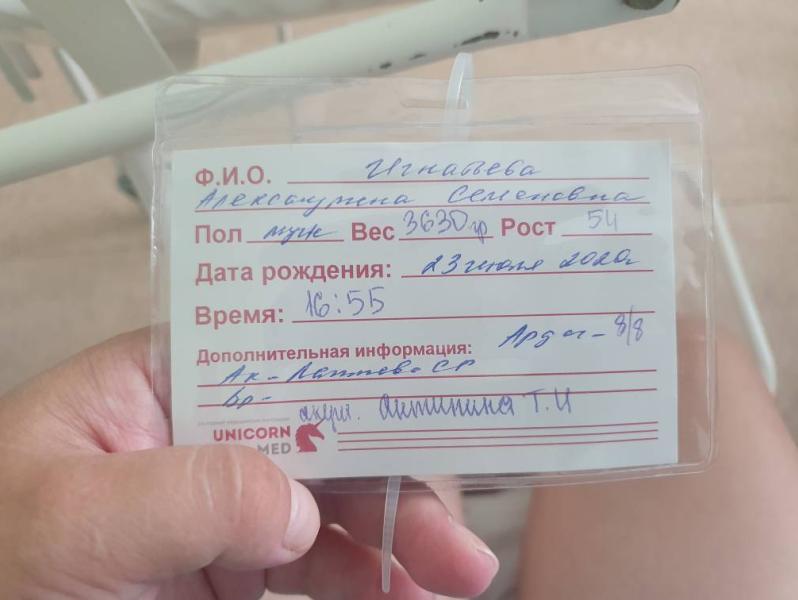 Ф.И.О. Игнатьева
Александрина Семеновна
Пол муж Вес 3630гр Рост 54
Дата рождения: 23 июля 2020г
Время: 16:55
Дополнительная информация: 8/8
Ак - СР
Вр -
акуш. Т.И
UNICORN
MED